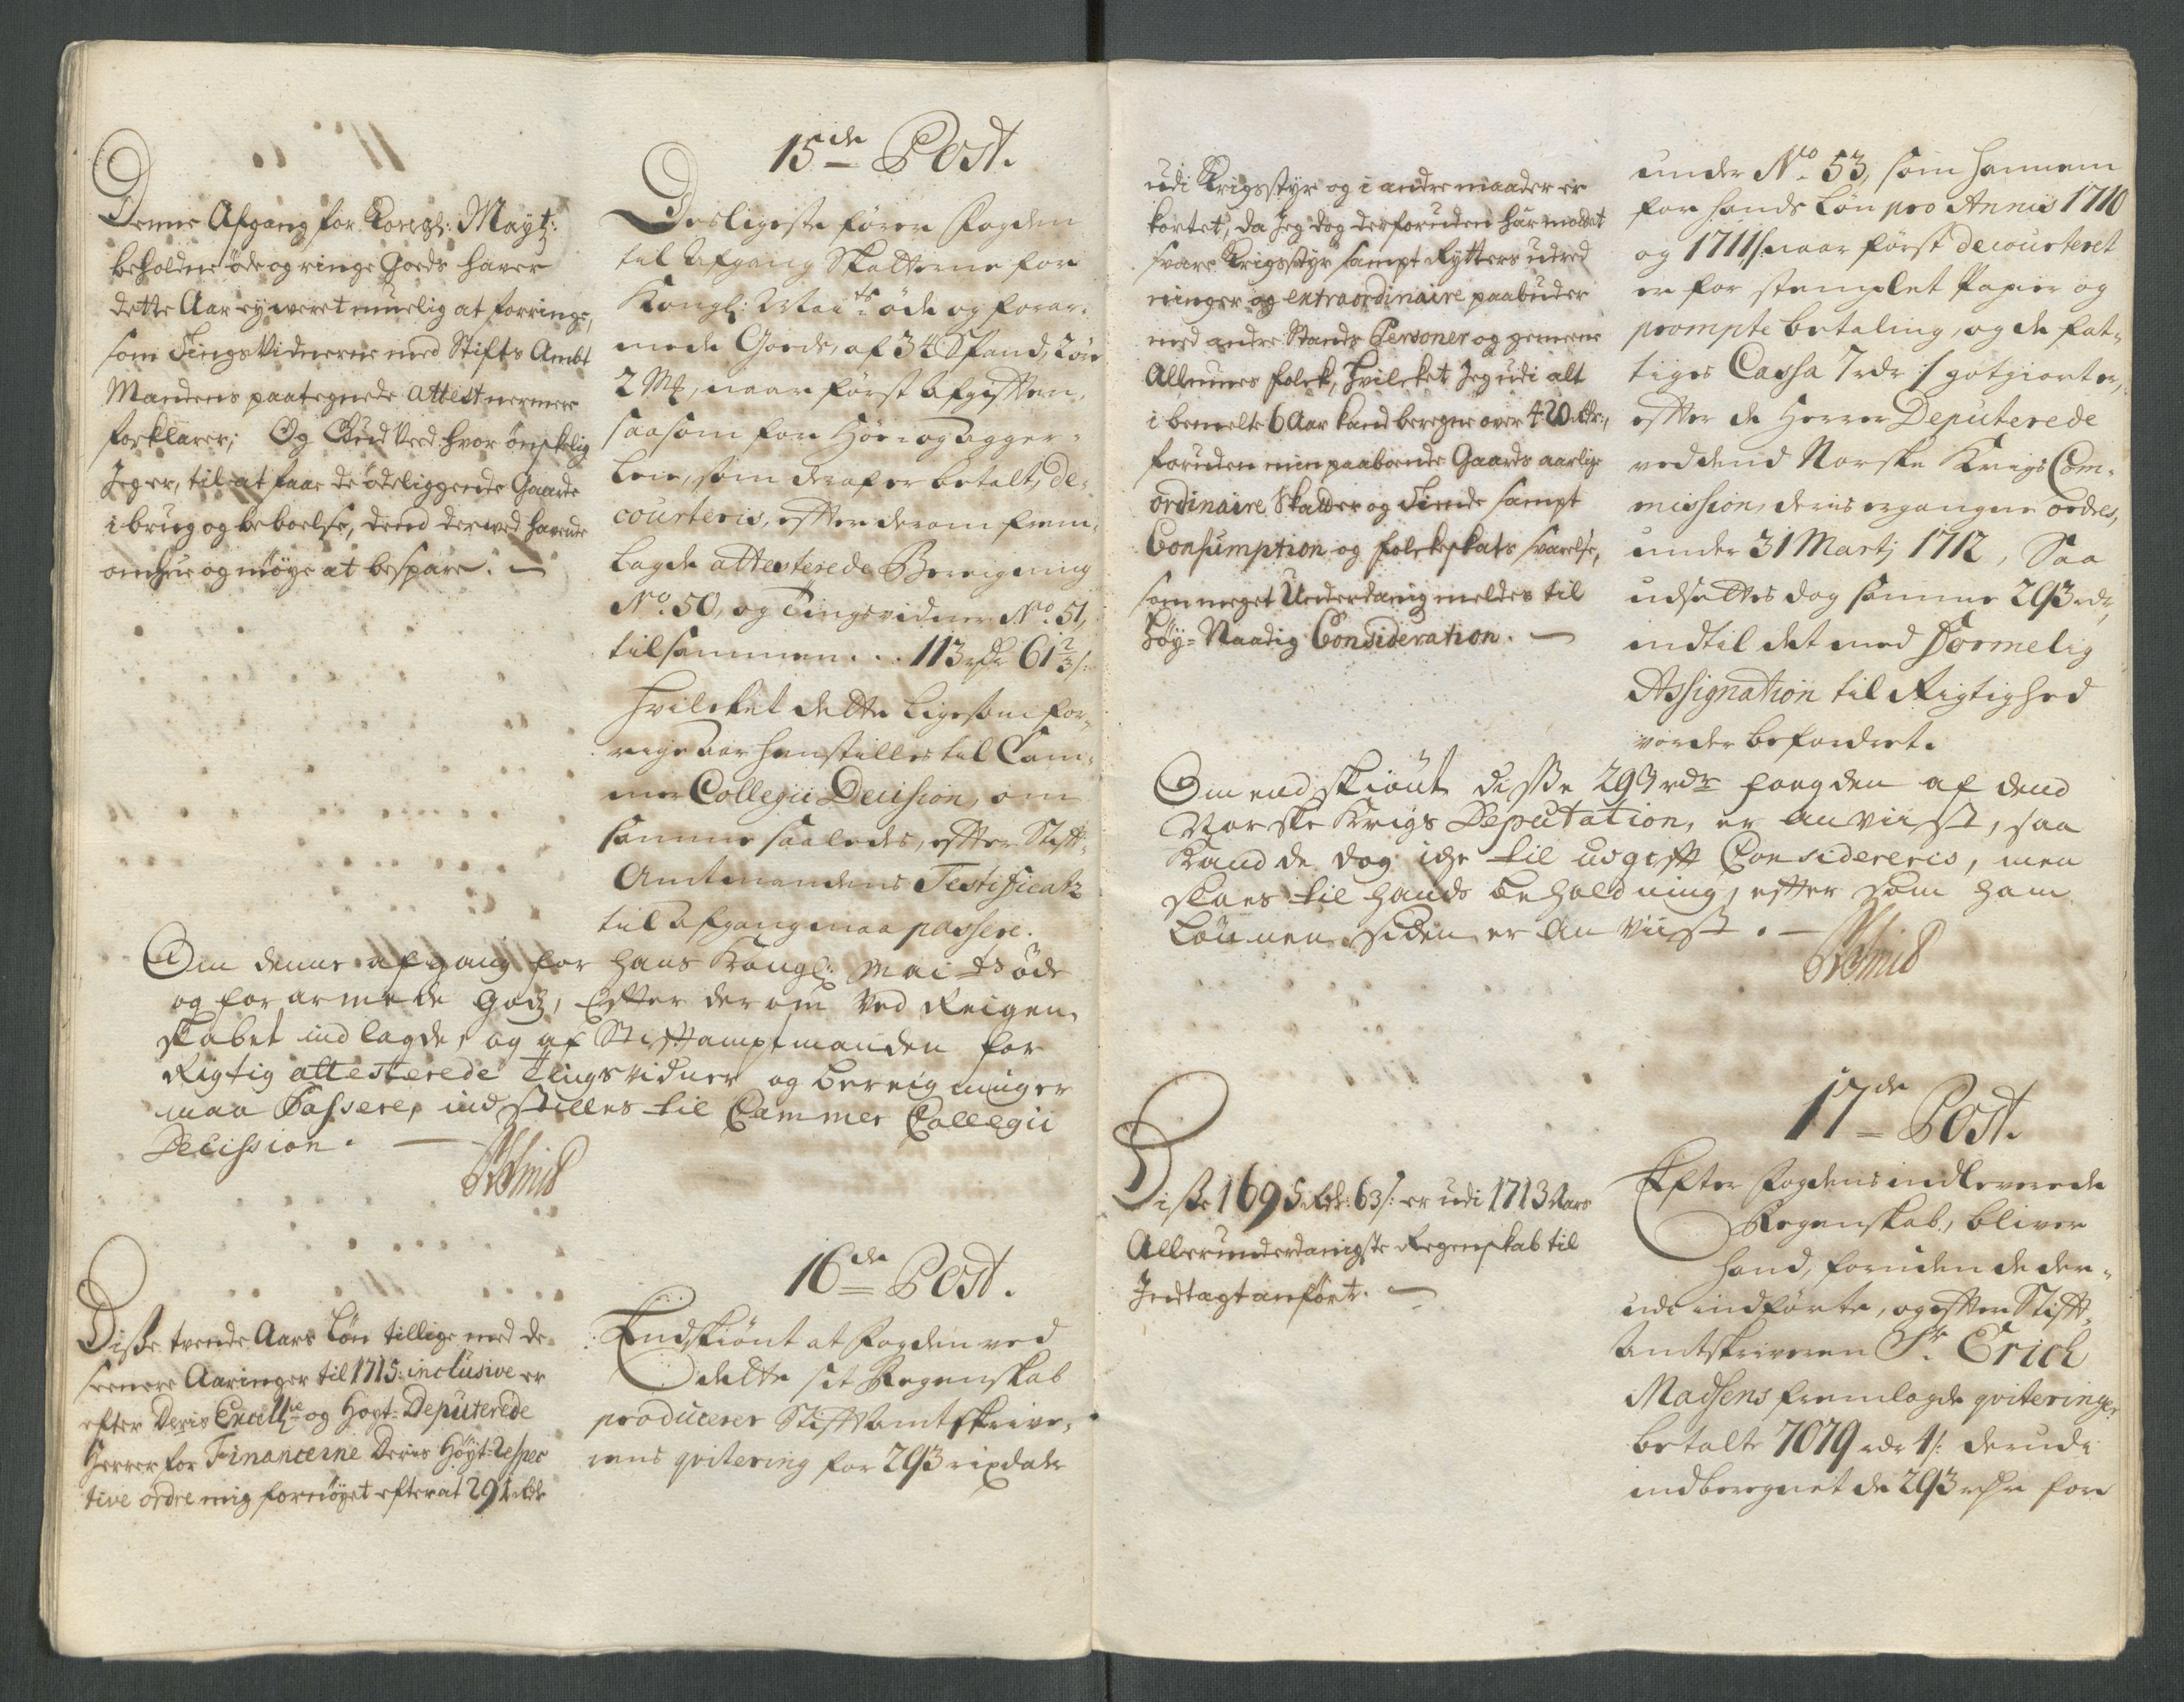 Denne Afgang for Kongl: Maytz:
beholdne øde og ringe Goeds haver
dette Aar ey weret muelig at forringe,
som Tings Vidnerne med Stifts Ambt
Mandens paategnede attest nermere
forklarer; Og Gud Veed hvor ønskelig
Jeg er, til at faae de ødeliggende Gaarde
i brug og beboelse, dend derved havende
omhue og møye at bespare. —
15de Post.
Desligeste fører Fogden
til Afgang Skatterne for
Kongl: Maits øde og forar-
mede Goeds, af 34 Spand, 2 øre
2 Mk, naar først Afgiften,
saasom for Hør- og agger-
leie, som deraf er betalt, de-
courteris, efter derom frem-
lagde attesterede Beregning
No. 50, og Tingsvidner No. 51,
tilsammen . . . 113 rdr 61 2/3 s:
Hvilcket dette ligesom for-
rige aar henstilles til Cam-
mer Collegii Decision, om
samme saaledes, efter Stift-
Amtmandens Testificatz
til Afgang maa passere.
Om denne afgang for hans Kongl: Maits øde
og forarmede Godz, Efter derom Ved Reigen-
skabet indlagde, og af Stiftamptmanden for
Rigtig attesterede Tingsvidner og bereigninger
maa Passere, indstilles til Cammer Collegii
Decission. —
Disse tvende Aars Løn tillige med de
seenere Aaringer til 1715: inclusive er
efter Deris Excellce og Høyt-Deputerede
Herrer for Financerne Deris Høyt-Respec
tive ordre mig fornøyet efter at 291 rdr
16de Post.
Endskiønt at Fogden ved
dette sit Regenskab
producerer Stiftamtskrive-
rens qvitering for 293 rixdaler
udi Krigsstyr og i andre maader er
kortet, da Jeg dog derforuden har maattet
svare Krigsstyr sampt Rytters udred
ninger og extraordinaire paabuder
med andre Stands Personer og gemeene
Allmues folck, hvilcket Jeg udi alt
i bemelte 6 Aar kand beregne over 420 rdr,
foruden min paaboende Gaards aarlige
ordinaire Skatter og Tiende sampt
Consumption og folckeskats svarelse,
som meget Underdanig meldes til
Høy-Naadig Consideration. —
under No. 53, som hannem
for hands Løn pro Annis 1710
og 1711/: naar først decourteret
er for stemplet Papir og
prompte betaling, og de fat-
tiges Cassa 7 rdr :/ gotgiort er,
efter de Herrer Deputerede
ved dend Norske Krigs Com-
mission, deris ergangne ordre,
under 31 Martj 1712, Saa
udsættes dog samme 293 rdr,
indtil det med Formelig
Assignation til Rigtighed
vorder befordret.
Om end skiønt disse 293 rdr fogden af dend
Norske Krigs Deputation, er anviist, saa
Kand de dog icke til udgift Considereris, men
slaaes til hands beholdning, efter som ham
Lønnen siden er an viist. —
Disse 1695 Rdr: 63 s: er udi 1713 Aars
Allerunderdanigste Regenskab til
Indtægt anført. —
17de Post.
Efter Fogdens indleverede
Regenskab, bliver
hand, foruden de der-
udi indførte, og efter Stift-
Amtskriveren Sr. Erich
Madsens fremlagde qviteringer
betalte 7079 rdr 4 s: derudi
indberegnet de 293 rdr for